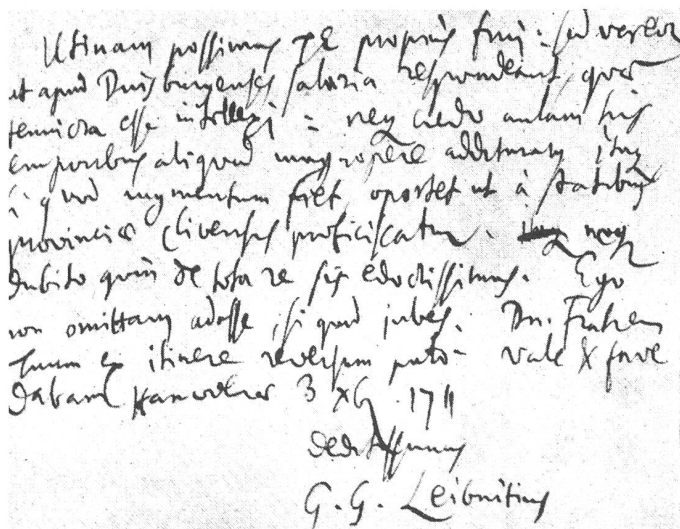 Utinam possimus te propius frui: sed vereor
ut apud Duisburgenses salaria respondeant, quae
tenuiora esse intellexi: neq credo aulam his
temporibus aliquid magnopere addituram itaq
si quod augmentum fiet, oportet ut à statibus
provinciae Clivensis proficiscatur. neq
dubito quin de tota re sis edoctissimus. Ego
non omittam adesse, si quid jubes. Dn. Fratrem
Tuum ex itinere reversum puto. Vale & fave
dabam Hanoverae 3 Xb 1711
deditissimus
G. G. Leibnitius